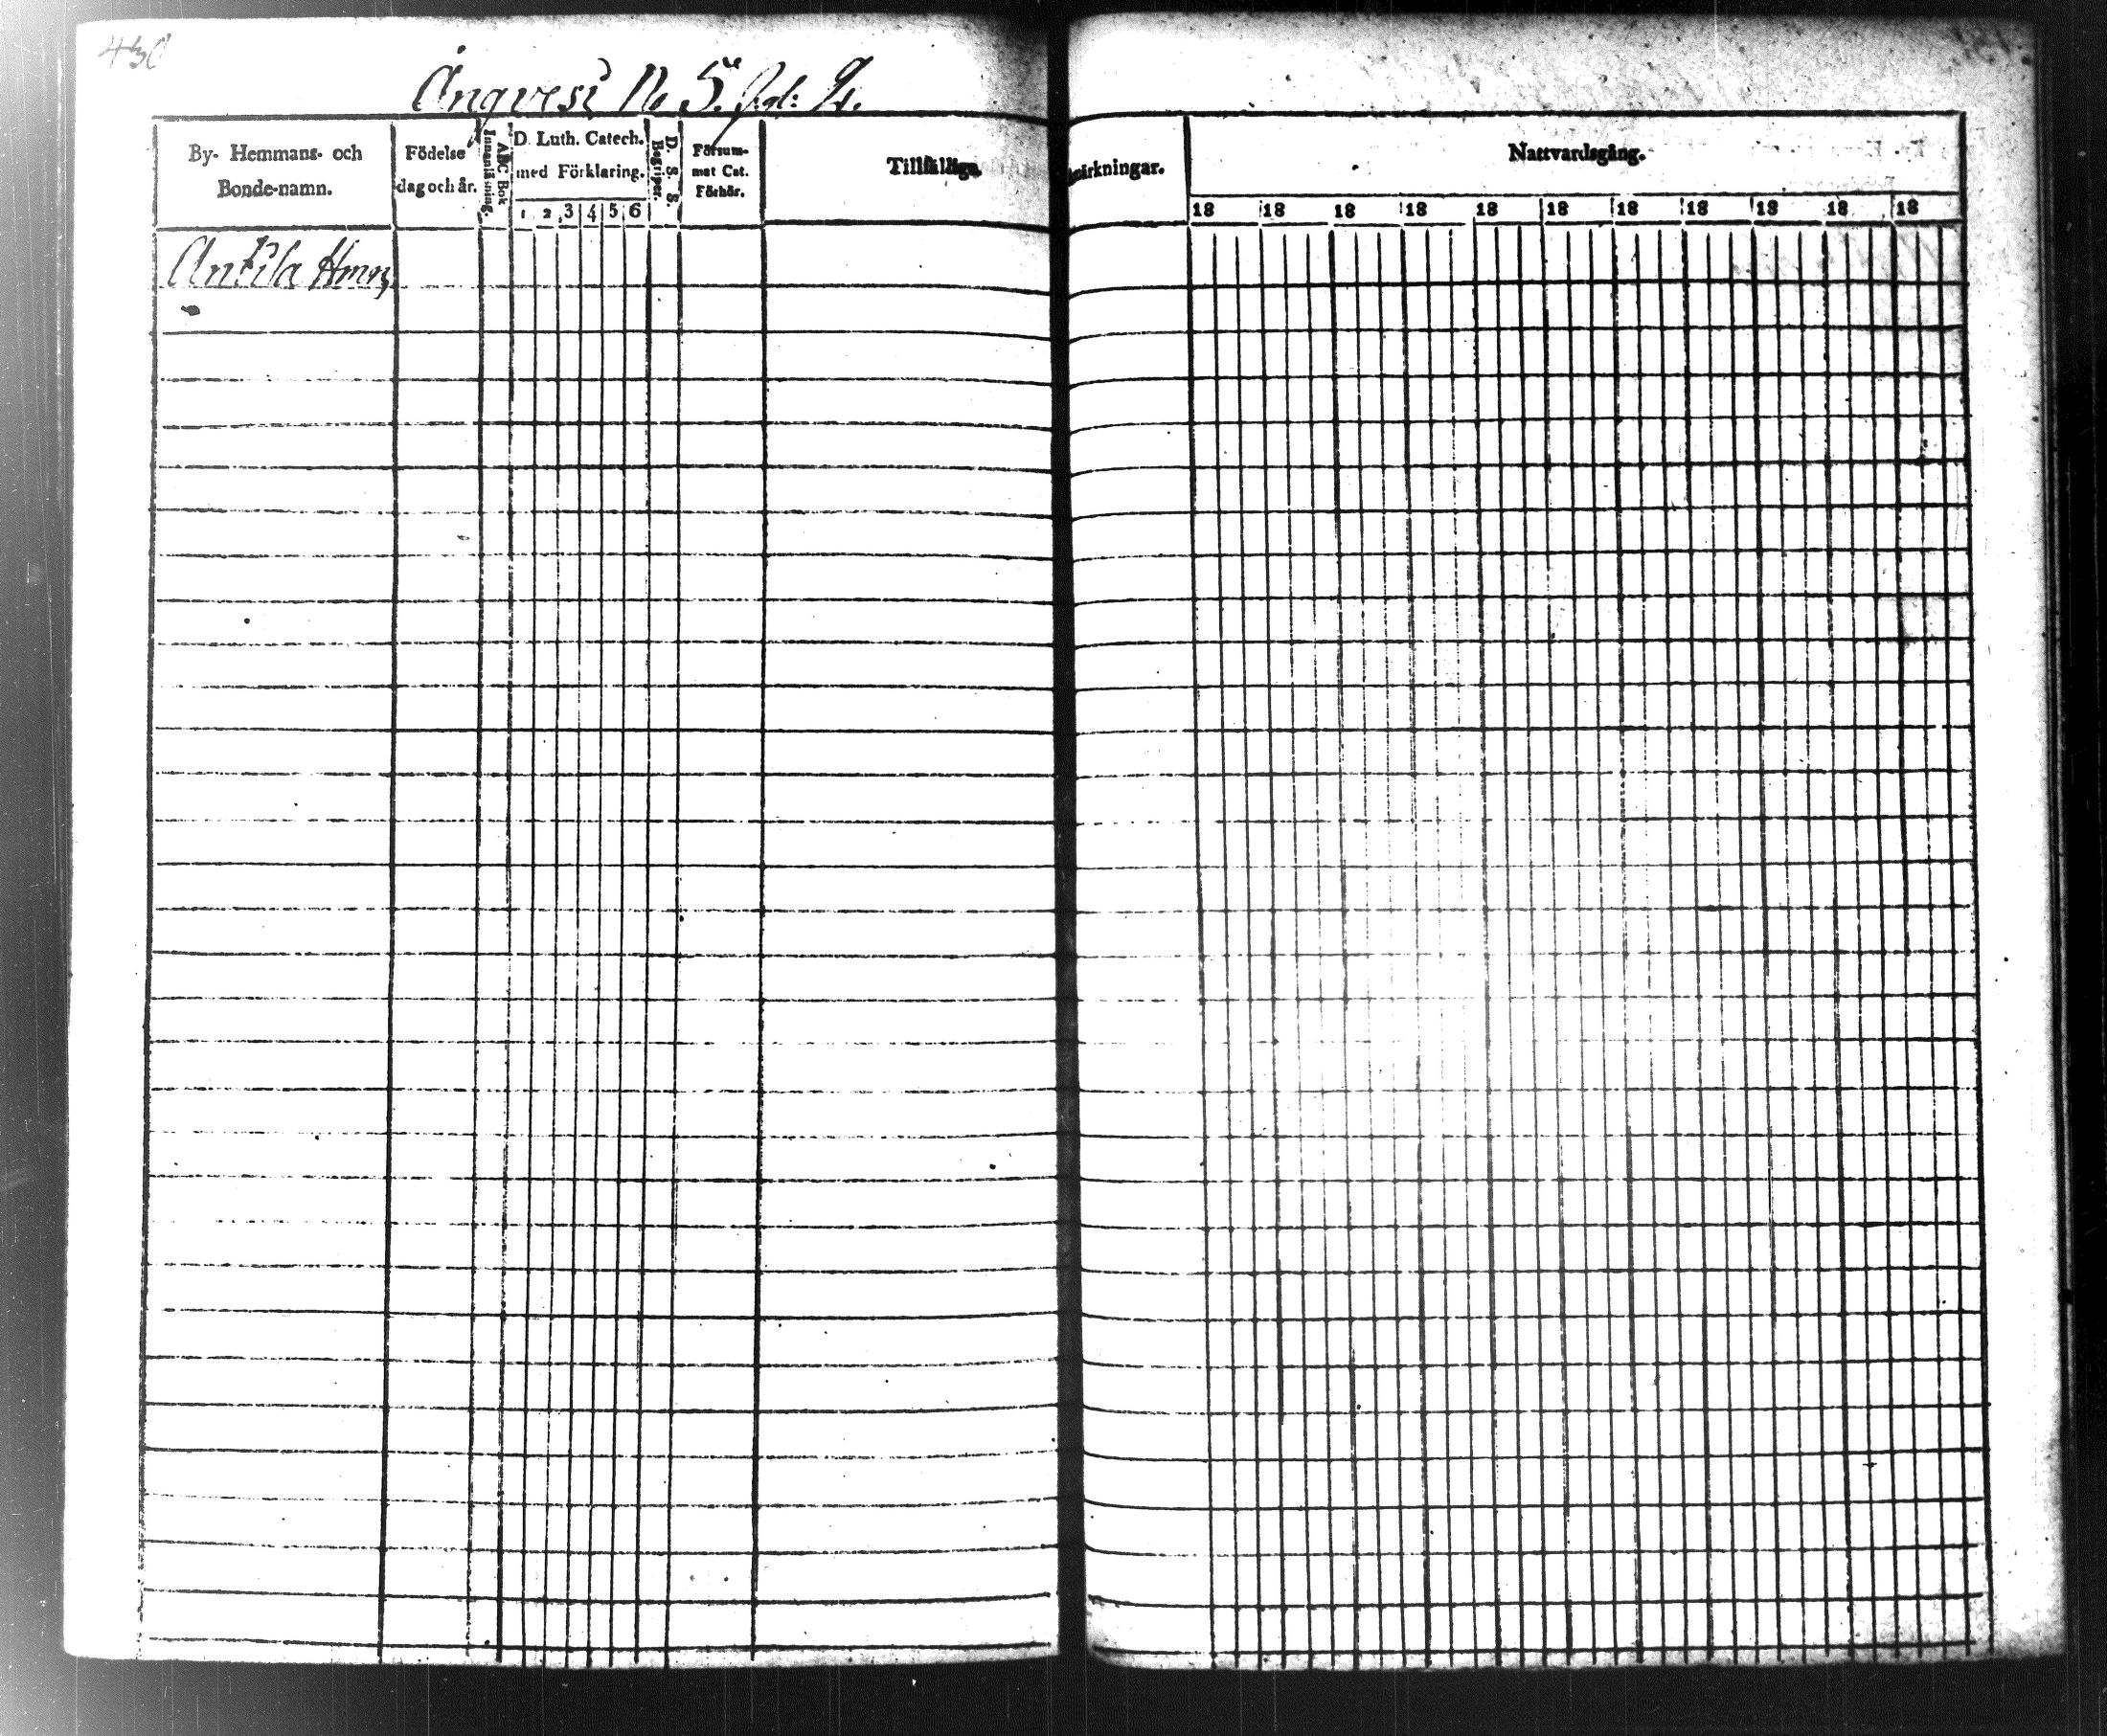 450
Ångvesi No 5.
By- Hemmans- och
Bonde-namn.
Födelse
dag och år.
Innanläsning.
ABC Bok
D. Luth. Catech.
med Förklaring.
1 2 3 4 5 6
Begriper.
D. S. S.
Försum-
mat Cat.
Förhör.
Tillfällige
Anmärkningar.
Nattvardsgång.
18 18 18 18 18 18 18 18 18 18 18
Antila Hmn